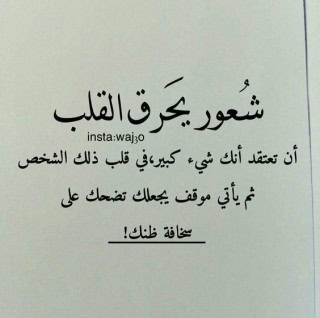 شُعور يحَرق القلب
insta:waj3o
أن تعتقد أنك شيء كبير،في قلب ذلك الشخص
ثم يأتي موقف يجعلك تضحك على
سخافة ظنك!